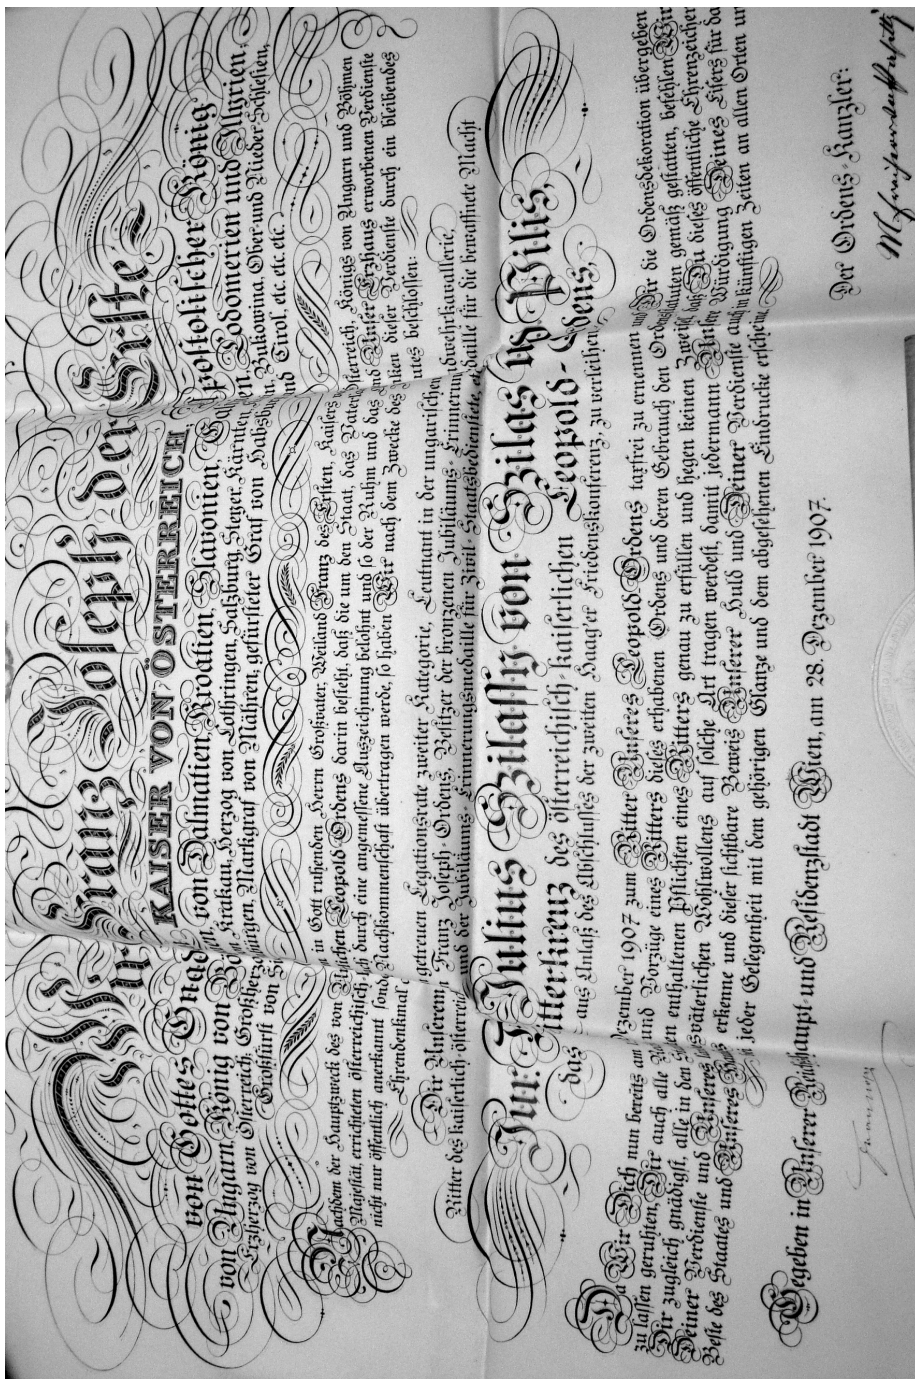 Wir Franz Joseph der Erste
KAISER VON ÖSTERREICH
von Gottes Gnaden, Apostolischer König
von Ungarn, König von Böhmen, von Dalmatien, Kroatien, Slavonien, Galizien, Lodomerien und Illyrien,
Erzherzog von Österreich, Großherzog von Krakau, Herzog von Lothringen, Salzburg, Steyer, Kärnten, Krain, Bukowina, Ober- und Nieder-Schlesien,
Großfürst von Siebenbürgen, Markgraf von Mähren, gefürsteter Graf von Habsburg und Tirol, etc. etc. etc.
Nachdem der Hauptzweck des von in Gott ruhenden Herrn Großvater, Weiland Franz des Ersten, Kaisers Österreich, Königs von Ungarn und Böhmen
Majestät, errichteten österreichischen Leopold-Ordens darin besteht, daß die um den Staat, das Vaterland und Unser Erzhaus erworbenen Verdienste
nicht nur öffentlich anerkannt, sondern durch eine angemessene Auszeichnung belohnt und so der Ruhm und das Andenken dieser Verdienste durch ein bleibendes
Ehrendenkmal Nachkommenschaft übertragen werde, so haben Wir nach dem Zwecke des beschlossen:
Dir Unserem getreuen Legationsrate zweiter Kategorie, Leutnant in der ungarischen Landwehrkavallerie,
Ritter des kaiserlich-österreichischen Franz Joseph-Ordens, Besitzer der bronzenen Jubiläums-Erinnerungsmedaille für die bewaffnete Macht
und der Jubiläums-Erinnerungsmedaille für Zivil-Staatsbedienstete,
Jur. Julius Szilassy von Szilas und Pilis,
das Ritterkreuz des österreichisch-kaiserlichen Leopold-Ordens,
aus Anlaß des Abschlusses der zweiten Haager Friedenskonferenz, zu verleihen.
Da Wir Dich nun bereits am Dezember 1907 zum Ritter Unseres Leopold-Ordens taxfrei zu ernennen und Dir die Ordensdekoration übergeben
zu lassen geruhten, Dir auch alle und Vorzüge eines Ritters dieses erhabenen Ordens und deren Gebrauch den Ordensstatuten gemäß gestatten, befehlen Wir
Dir zugleich gnädigst, alle in den enthaltenen Pflichten eines Ritters genau zu erfüllen und hegen keinen Zweifel, daß Du dieses öffentliche Ehrenzeichen
Deiner Verdienste und Unseres landesväterlichen Wohlwollens auf solche Art tragen werdest, damit jedermann Unsere Würdigung Deines Eifers für das
Beste des Staates und Unseres Hauses erkenne und dieser sichtbare Beweis Unserer Huld und Deiner Verdienste auch in künftigen Zeiten an allen Orten und
jeder Gelegenheit mit dem gehörigen Glanze und dem abgesehenen Eindrucke erscheine.
Gegeben in Unserer Reichshaupt- und Residenzstadt Wien, am 28. Dezember 1907.
Der Ordens-Kanzler: